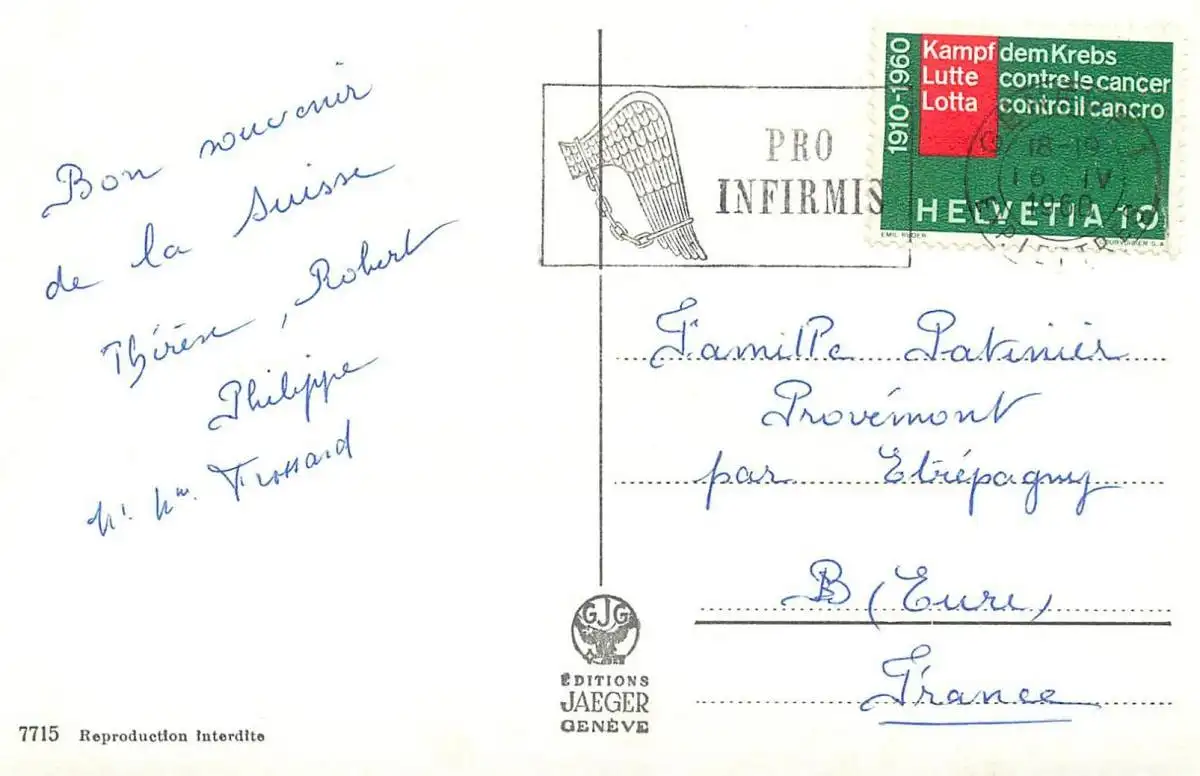 Bon souvenir
de la Suisse
Thérèse, Robert
Philippe
Frossard
7715 Reproduction interdite
GJG
ÉDITIONS
JAEGER
GENÈVE
PRO
INFIRMIS
1910-1960
Kampf dem Krebs
Lutte contre le cancer
Lotta contro il cancro
HELVETIA 10
EMIL RUDER COURVOISIER S.A.
18-19
16. IV.
1960
Famille Patinier
Provémont
par Etrépagny
(Eure)
France